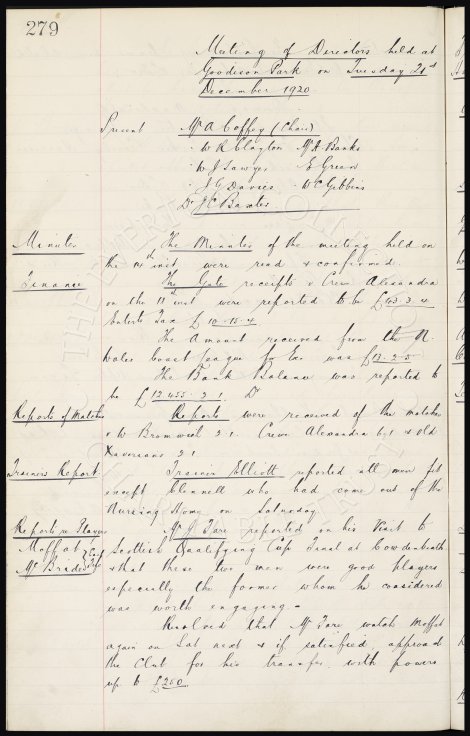 279
Meeting of Directors held at
Goodison Park on Tuesday 21st
December 1920
Present Mr A Coffey (Chair)
" W R Clayton Mr A Banks
" W J Sawyer E Green
" J G Davies W C Gibbins
Dr J C Baxter
Minutes The Minutes of the meeting held on
the 14th inst were read & confirmed.
Finance The Gate receipts v Crew Alexandra
on the 18th inst were reported to be £43.3.4
Enterts Tax £10.15.4
The Amount received from the N.
Wales Coast League for was £13.2.5
The Bank Balance was reported to
be £12,455.2.1. Dr
Reports of Matches Reports were received of the matches
v W Bromwich 2.1. Crewe Alexandra v Old
Xaverians 2.1
Trainers Report Trainer Elliott reported all men fit
except Clennell who had come out of the
Nursing Home on Saturday
Reports re Players Mr J Fare reported on his visit to
Moffat Scottish Qualifying Cup Final at Cowdenbeath
Mc Brades & that these two men were good players
especially the former whom he considered
was worth engaging -
Resolved that Mr Fare watch Moffat
again on Sat next & if satisfied approach
the Club for his transfer with powers
up to £250